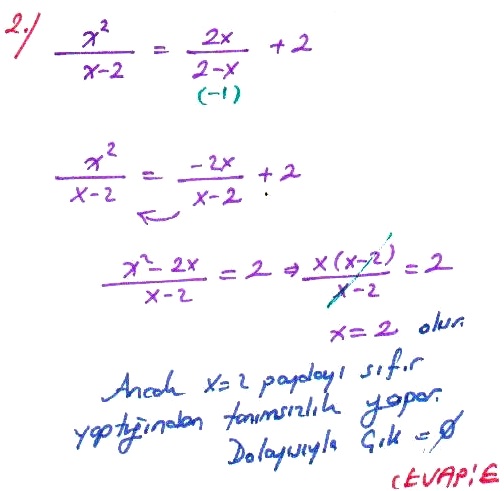 2.) x²/(x-2) = 2x/(2-x) + 2
(-1)
x²/(x-2) = -2x/(x-2) + 2
(x²-2x)/(x-2) = 2 ⇒ x(x-2)/(x-2) = 2
x=2 olur.
Ancak x=2 paydayı sıfır
yaptığından tanımsızlık yapar.
Dolayısıyla Ç.k = ∅
CEVAP: E